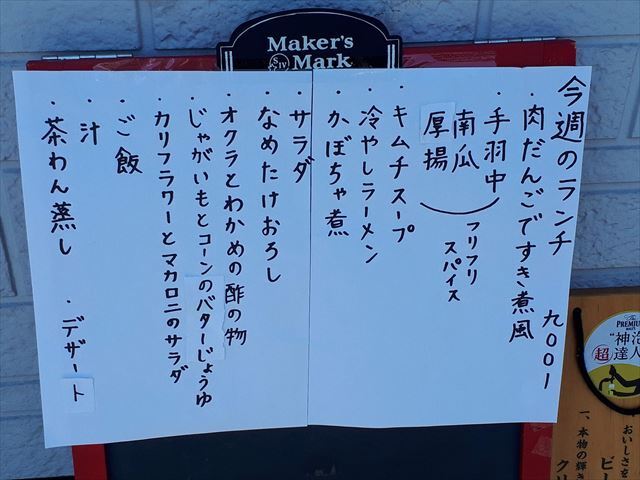 Maker's
SIV Mark
今週のランチ 九〇〇1
・肉だんごですき煮風
・手羽中
南瓜
厚揚
フリフリ
スパイス
・キムチスープ
・冷やしラーメン
・かぼちゃ煮
・サラダ
・なめたけおろし
・オクラとわかめの酢の物
・じゃがいもとコーンのバターじょうゆ
・カリフラワーとマカロニのサラダ
・ご飯
・汁
・茶わん蒸し ・デザート
The
PREMIUM
"神泡
超達人
おいしさを
ビー
一、本物の輝き
ク